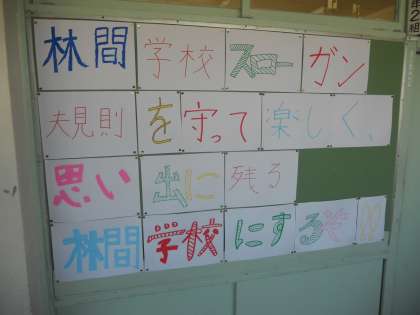 林間学校スローガン
規則を守って楽しく、
思い出に残る
林間学校にするぞ!!
年2組